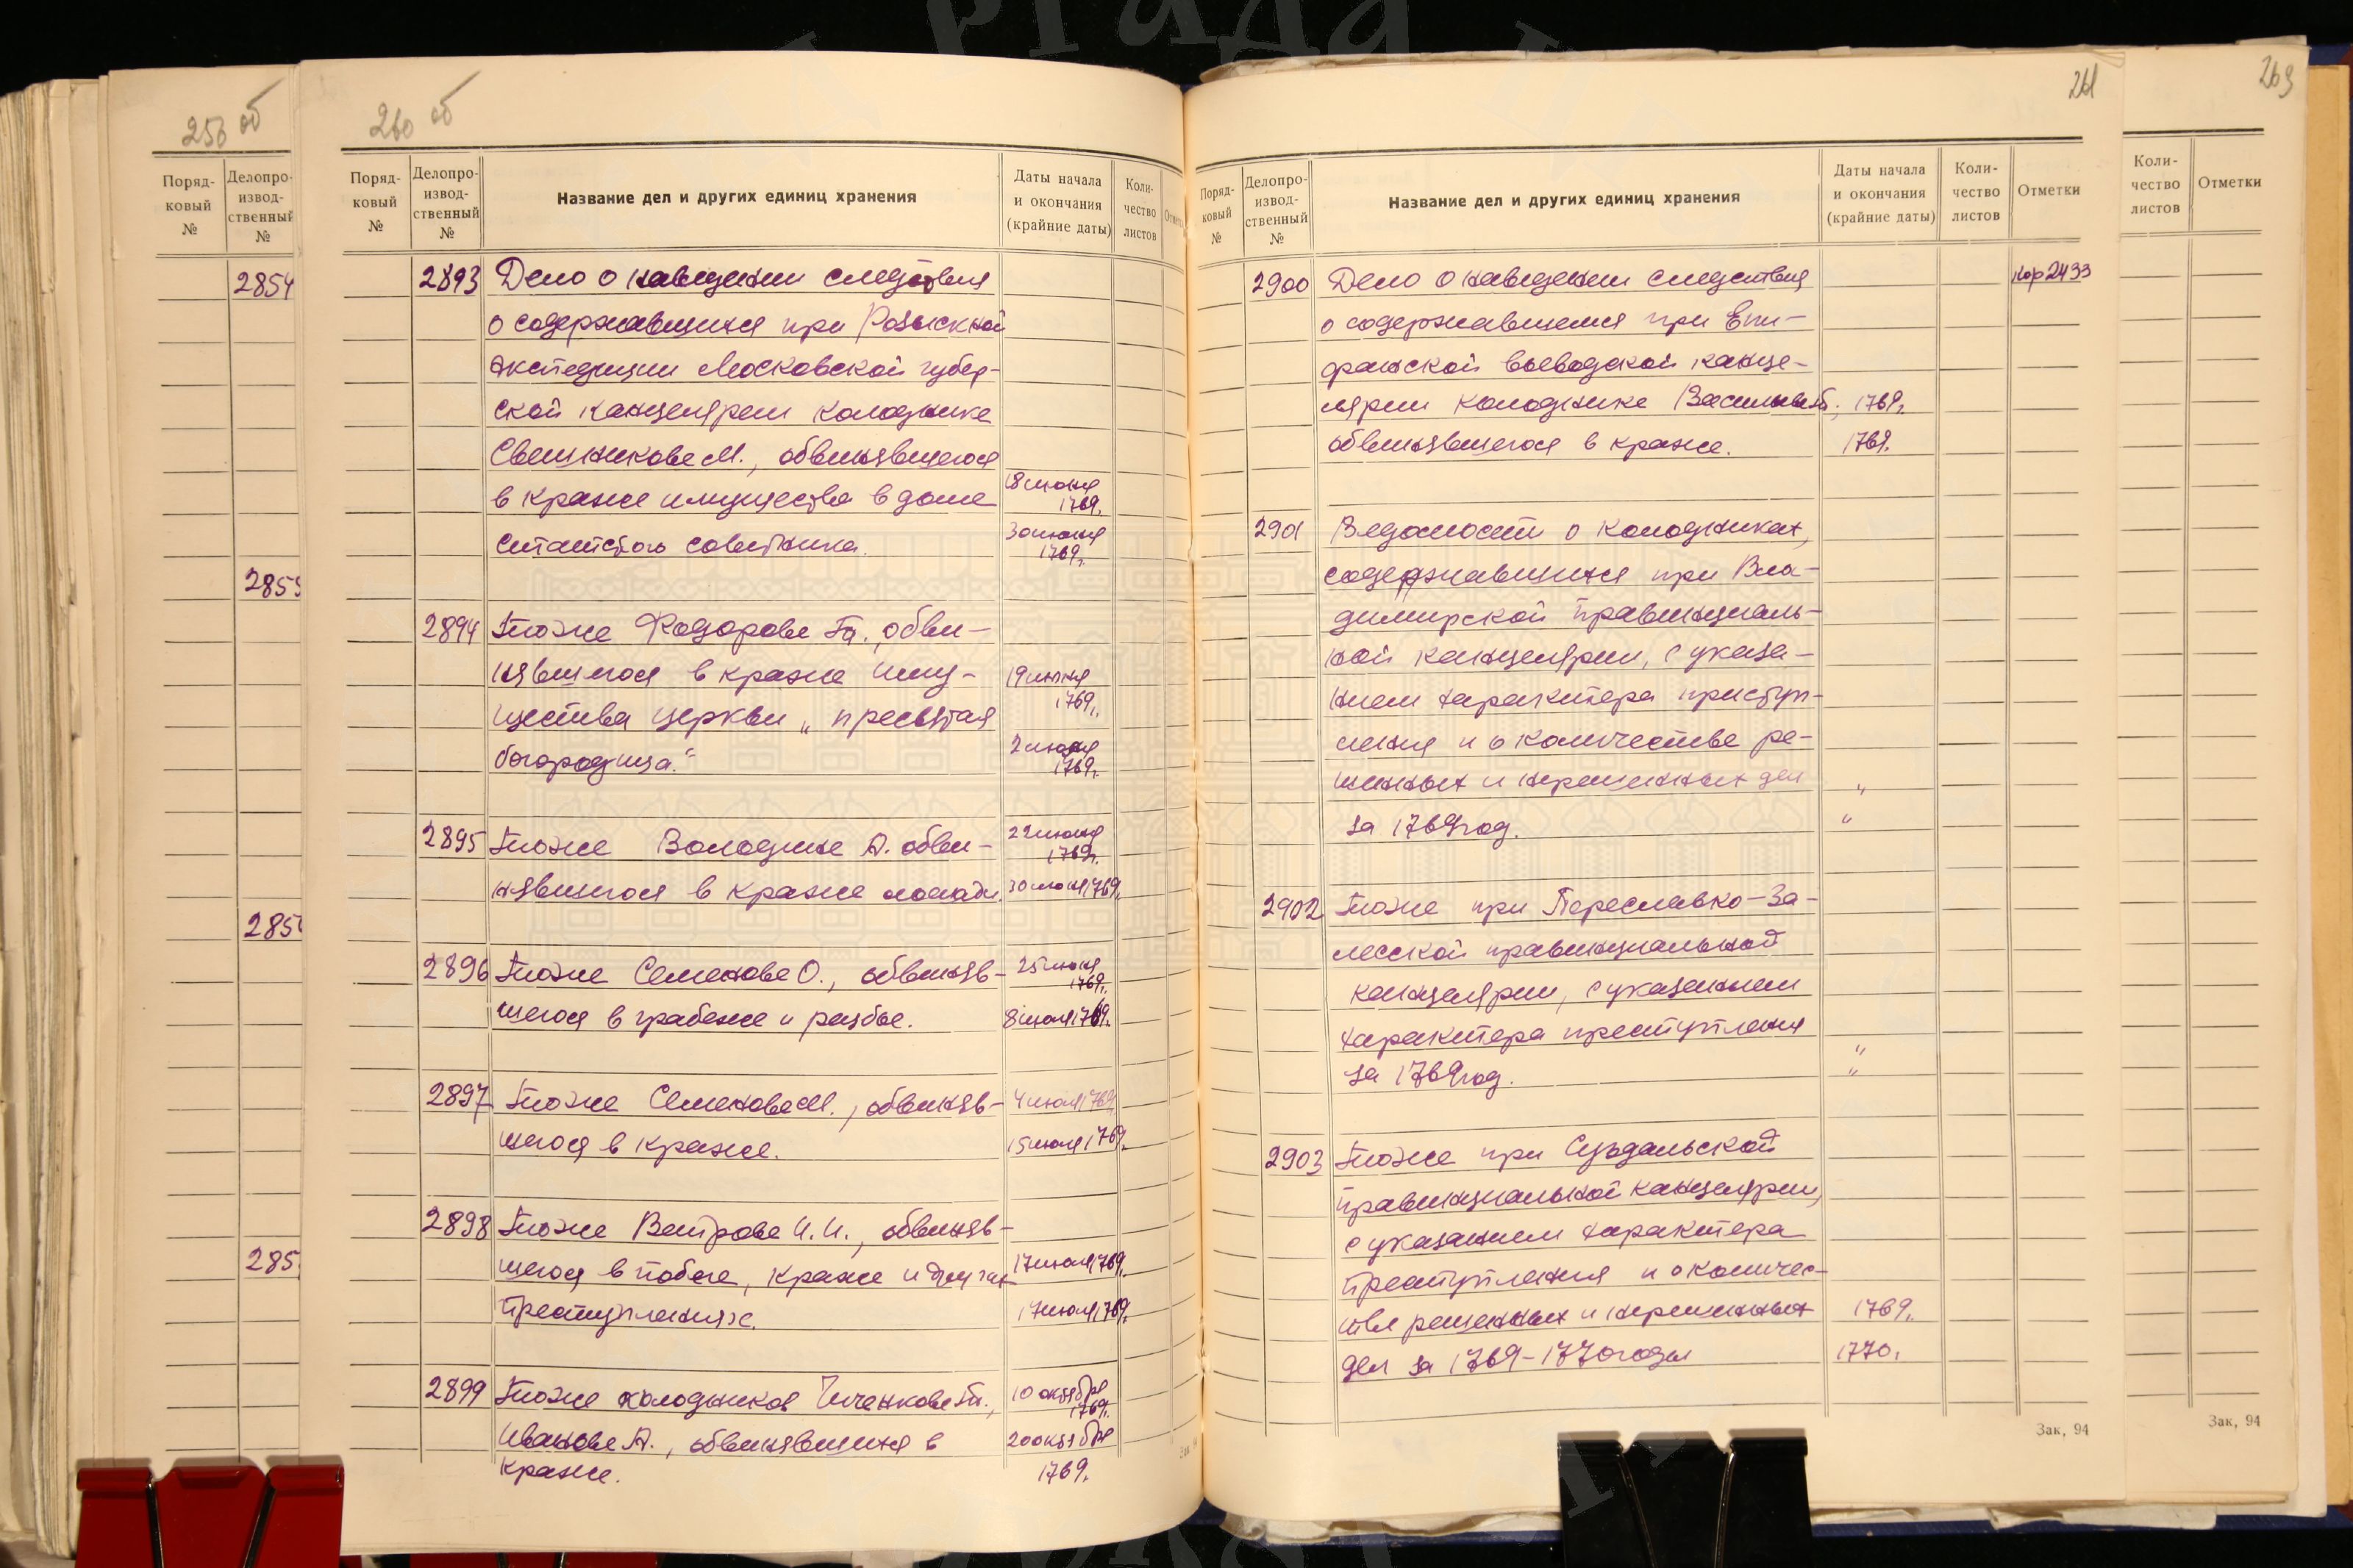 ргада
256 об
Поряд-
ковый
№
Делопро-
извод-
ственный
№
2854
2855
285
285
260 об
Поряд-
ковый
№
Делопро-
извод-
ственный
№
Название дел и других единиц хранения
Даты начала
и окончания
(крайние даты)
Коли-
чество
листов
2893 Дело о наведении следствия
о содержавшихся при Розыскной
экспедиции Московской губер-
ской канцелярии колоднике
Свешникове М., обвинявшегося
в краже имущества в доме 18 июня 1769г.
статского советника. 30 июня 1769г.
2894 То же Федорове Гр., обви-
нявшегося в краже иму- 19 июня 1769г.
щества церкви „пресвятая
богородица." 2 июля 1769г.
2895 То же Володине А. обви- 22 июня 1769г.
нявшегося в краже лошади. 30 июня 1769г.
2896 То же Семенове О., обвиняв- 25 июня 1769г.
шегося в грабеже и разбое. 8 июля 1769г.
2897 То же Семенове М., обвиняв- 4 июля 1769г.
шегося в краже. 15 июля 1769г.
2898 То же Ветрове И.И., обвиняв-
шегося в побеге, краже и других 17 июля 1769г.
преступлениях. 17 июля 1769г.
2899 То же колодников 10 октября 1769г.
Иванове А., обвинявшихся в 20 октября
краже. 1769г.
261
Поряд-
ковый
№
Делопро-
извод-
ственный
№
Название дел и других единиц хранения
Даты начала
и окончания
(крайние даты)
Коли-
чество
листов
Отметки
2900 Дело о наведении следствия кор 2433
о содержавшемся при Епи-
фанской воеводской канце-
лярии колоднике 1769г.
обвинявшегося в краже. 1769г.
2901 Ведомости о колодниках,
содержавшихся при Вла-
димирской правинциаль-
ной канцелярии, с указа-
нием характера приступ-
ления и о количестве ре-
шенных и нерешенных дел "
за 1769 год. "
2902 То же при Переславко-За-
лесской правинциальной
канцелярии, с указанием
характера преступления "
за 1769 год. "
2903 То же при Суздальской
правинциальной канцелярии,
с указанием характера
преступления и о количес-
тве решенных и нерешенных 1769г.
дел за 1769-1770 годы 1770г.
Зак, 94
263
Коли-
чество
листов
Отметки
Зак, 94